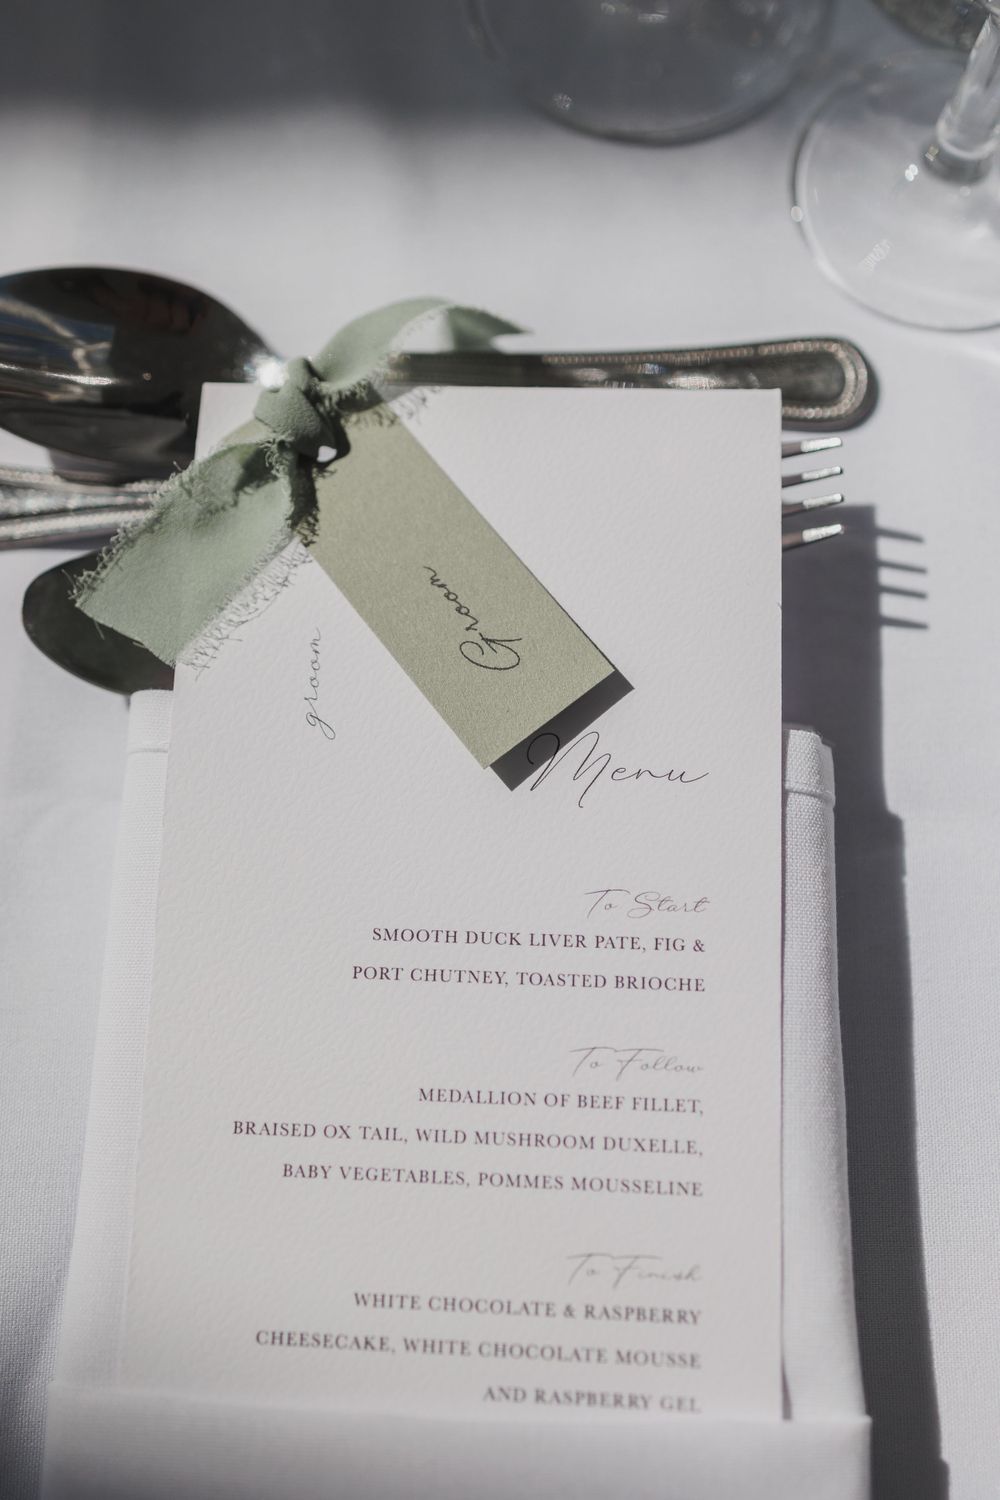 Groom
groom
Menu
To Start
SMOOTH DUCK LIVER PATE, FIG &
PORT CHUTNEY, TOASTED BRIOCHE
To Follow
MEDALLION OF BEEF FILLET,
BRAISED OX TAIL, WILD MUSHROOM DUXELLE,
BABY VEGETABLES, POMMES MOUSSELINE
To Finish
WHITE CHOCOLATE & RASPBERRY
CHEESECAKE, WHITE CHOCOLATE MOUSSE
AND RASPBERRY GEL